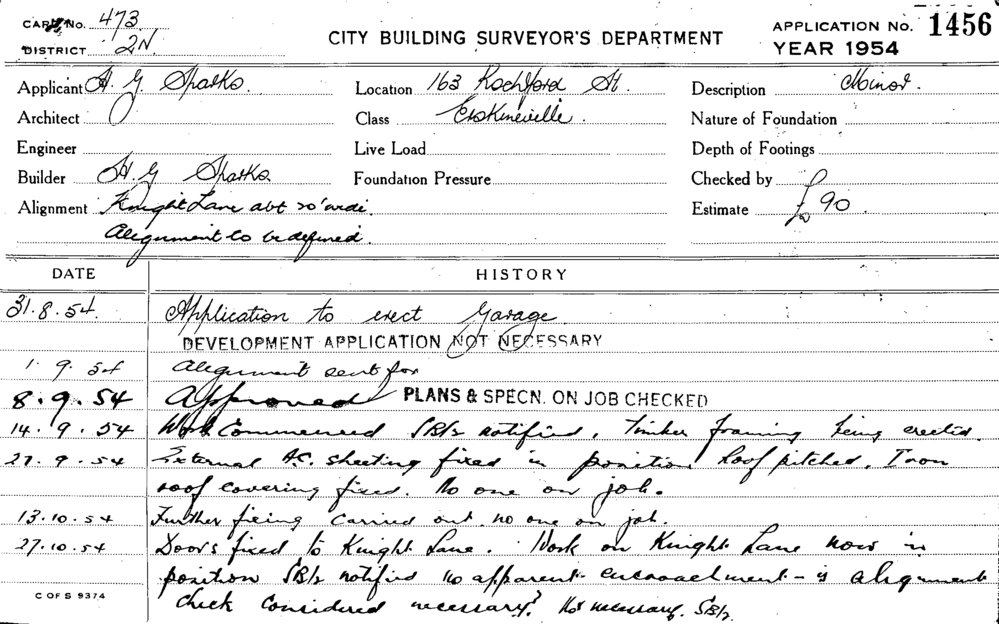 CARD No. 473
DISTRICT 2N
CITY BUILDING SURVEYOR'S DEPARTMENT
APPLICATION No. 1456
YEAR 1954
Applicant H. G. Sparks.
Location 163 Rochford St.
Description Minor.
Architect
Class Erskineville.
Nature of Foundation
Engineer
Live Load
Depth of Footings
Builder H. G Sparks.
Foundation Pressure
Checked by
Alignment Knight Lane abt 20' wide.
Estimate £90.
Alignment to be defined.
DATE
HISTORY
31.8.54. Application to erect Garage
DEVELOPMENT APPLICATION NOT NECESSARY
1.9.54 Alignment sent for
8.9.54 Approved PLANS & SPECN. ON JOB CHECKED
14.9.54 Work Commenced notified, Timber framing being erected.
27.9.54 External A.C. sheeting fixed in position Roof pitched, Iron
roof covering fixed. No one on job.
13.10.54 Further fixing carried out. no one on job.
27.10.54 Doors fixed to Knight Lane. Work on Knight Lane now in
position notified no apparent encroachment - is alignment
check considered necessary? Not necessary.
C OF S 9374